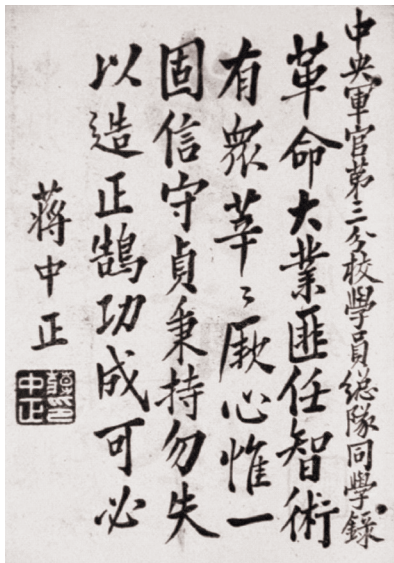 中央軍官第三分校學員總隊同學錄
革命大業匪任智術
有眾莘〻厥心惟一
固信守貞秉持勿失
以造正鵠功成可必
蔣中正
蔣印
中正